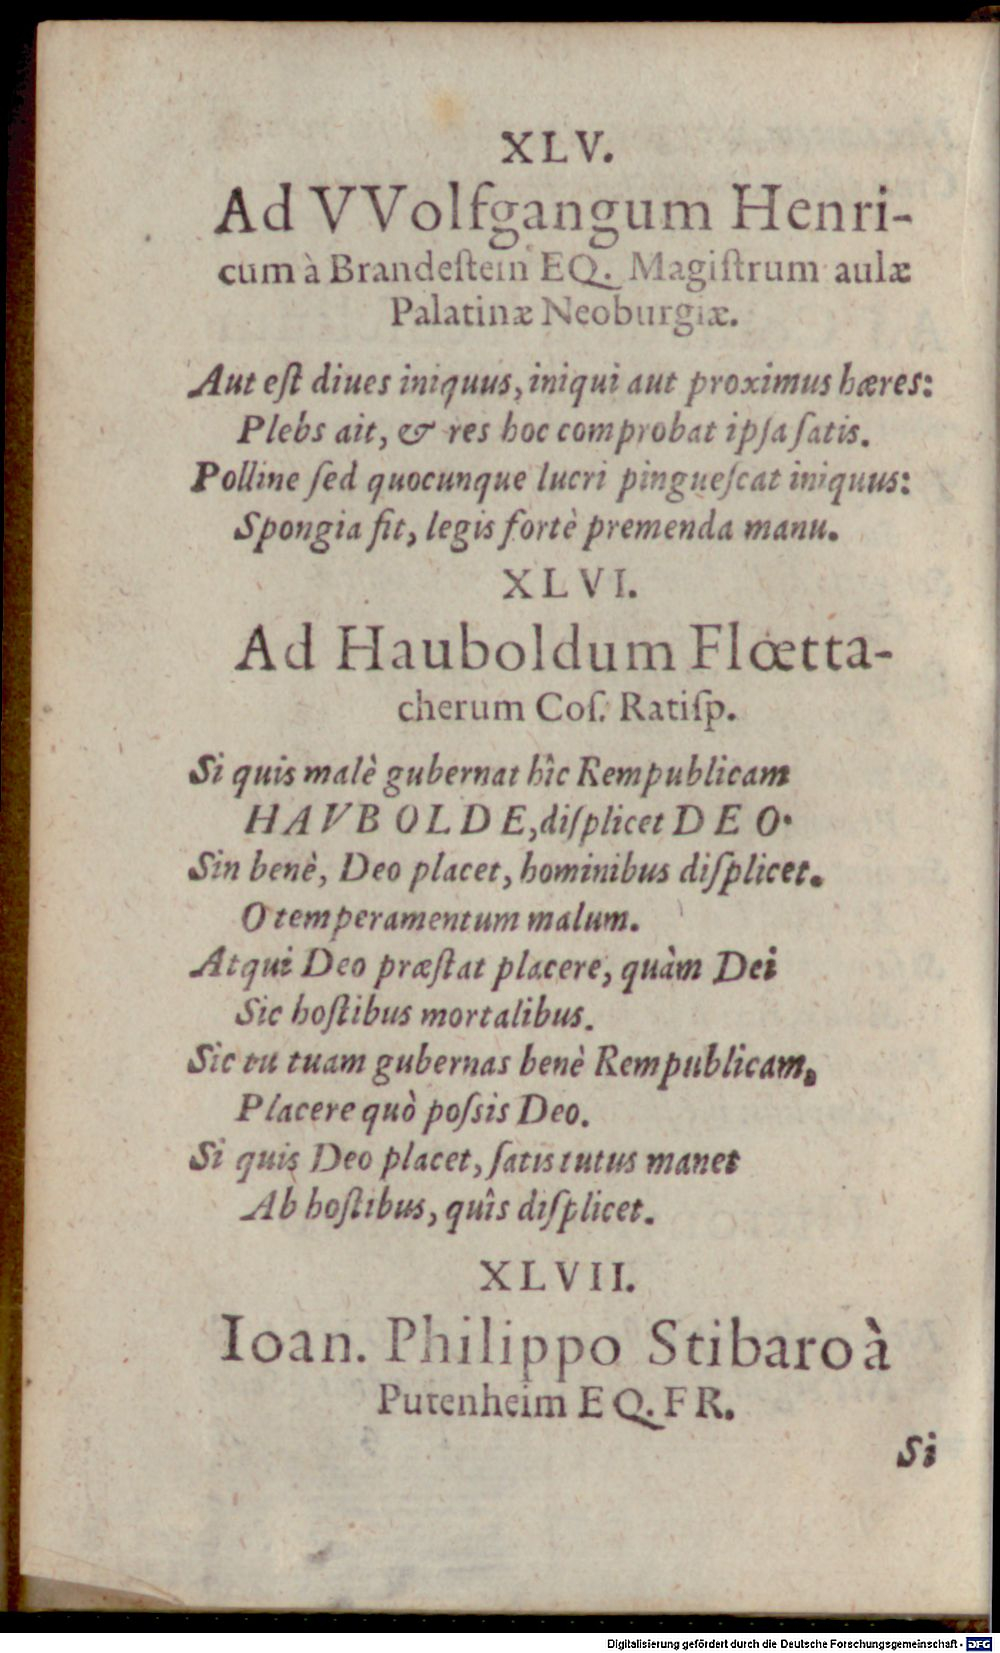 XLV.
Ad VVolfgangum Henri-
cum à Brandeſtein EQ. Magiſtrum aulæ
Palatinæ Neoburgiæ.
Aut eſt diues iniquus, iniqui aut proximus hæres:
Plebs ait, & res hoc comprobat ipſa ſatis.
Polline ſed quocunque lucri pingueſcat iniquus:
Spongia fit, legis fortè premenda manu.
XLVI.
Ad Hauboldum Flœtta-
cherum Coſ. Ratiſp.
Si quis malè gubernat hîc Rempublicam
HAVBOLDE, diſplicet DEO.
Sin benè, Deo placet, hominibus diſplicet.
O temperamentum malum.
Atqui Deo præſtat placere, quàm Dei
Sic hoſtibus mortalibus.
Sic tu tuam gubernas benè Rempublicam,
Placere quò poſsis Deo.
Si quis Deo placet, ſatis tutus manet
Ab hoſtibus, quîs diſplicet.
XLVII.
Ioan. Philippo Stibaro à
Putenheim EQ. FR.
Si
Digitalisierung gefördert durch die Deutsche Forschungsgemeinschaft - DFG